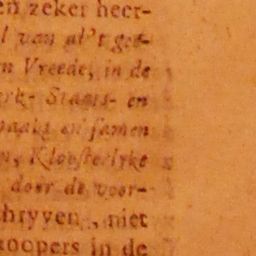 en zeker heer-
l van al't gee-
n Vreede, in de
rk- Staats- en
en samen
n, Kloosterlyke
door de voor-
hryven, niet
koopers in de